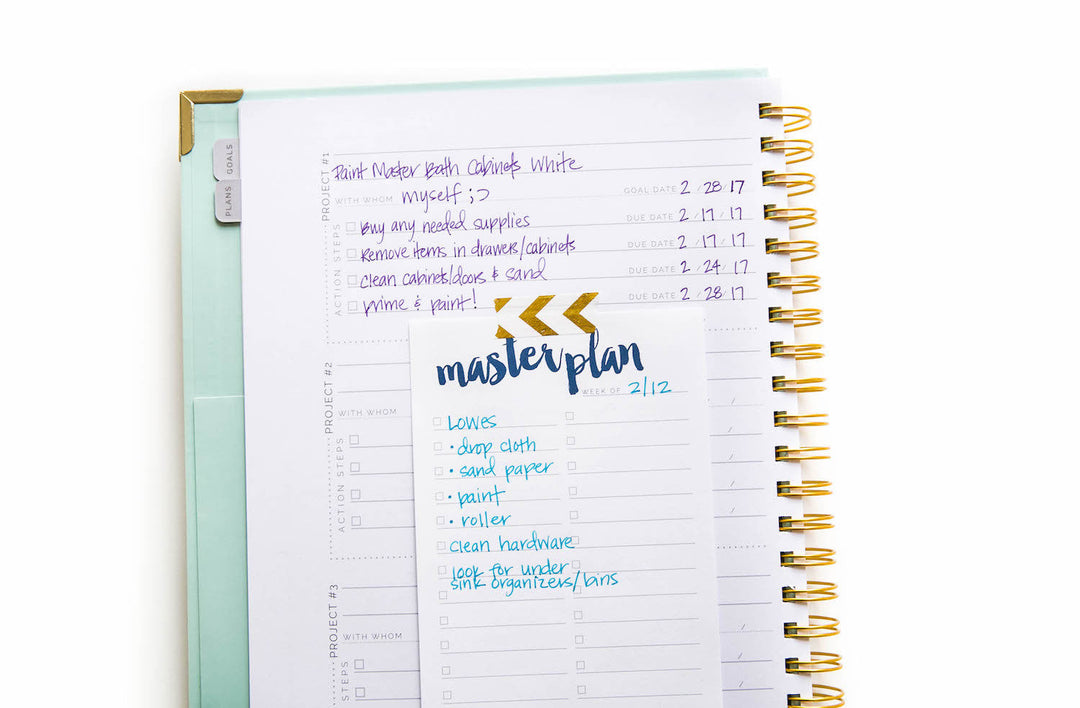 GOALS
PLANS
PROJECT #1
Paint Master Bath Cabinets White
WITH WHOM myself ;) GOAL DATE 2 / 28 / 17
ACTION STEPS
Buy any needed supplies DUE DATE 2 / 17 / 17
Remove items in drawers/cabinets DUE DATE 2 / 17 / 17
Clean cabinets/doors & sand DUE DATE 2 / 24 / 17
prime & paint! DUE DATE 2 / 28 / 17
PROJECT #2
WITH WHOM
ACTION STEPS
PROJECT #3
WITH WHOM
STEPS
master plan
WEEK OF 2/12
LOWES
• drop cloth
• sand paper
• paint
• roller
clean hardware
look for under
sink organizers/bins